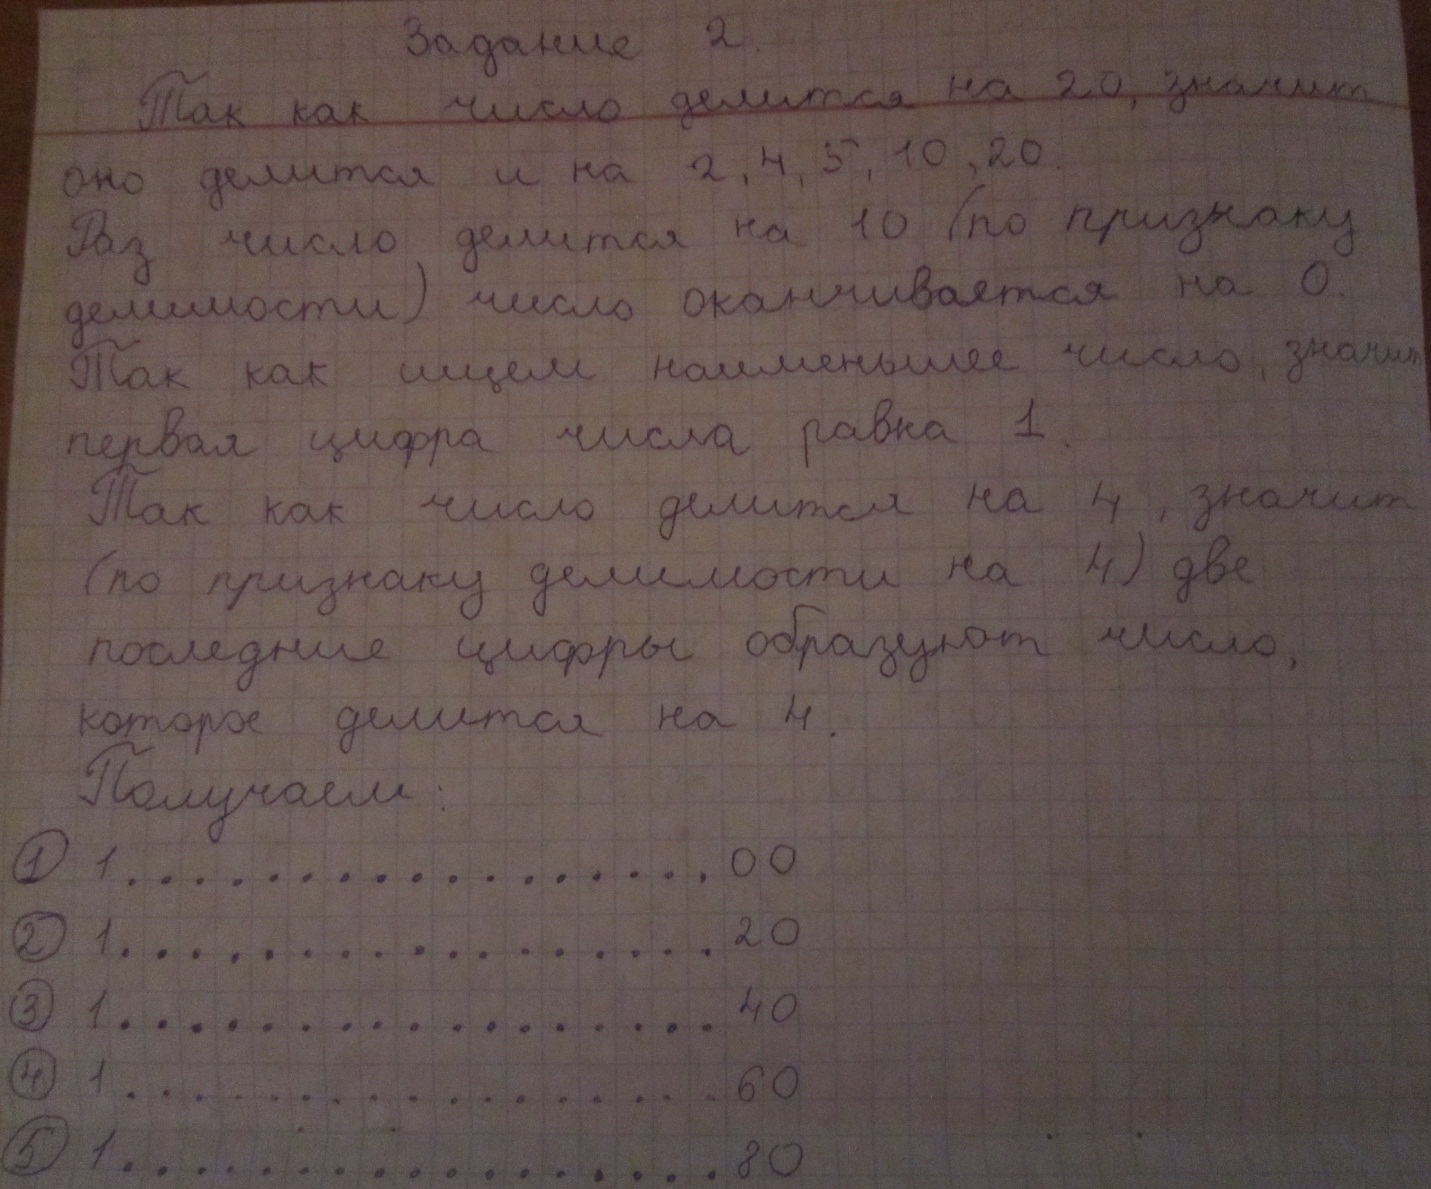 Задание 2.
Так как число делится на 20, значит
оно делится и на 2, 4, 5, 10, 20.
Раз число делится на 10 (по признаку
делимости) число оканчивается на 0.
Так как ищем наименьшее число, значит
первая цифра числа равна 1.
Так как число делится на 4, значит
(по признаку делимости на 4) две
последние цифры образуют число,
которое делится на 4.
Получаем:
① 1.................00
② 1.................20
③ 1.................40
④ 1.................60
⑤ 1.................80